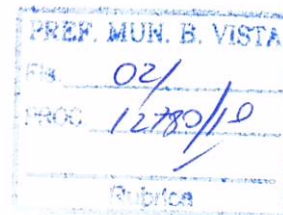 PREF. MUN. B. VISTA
Fls. 02/
PROC 12780/10
Rubrica